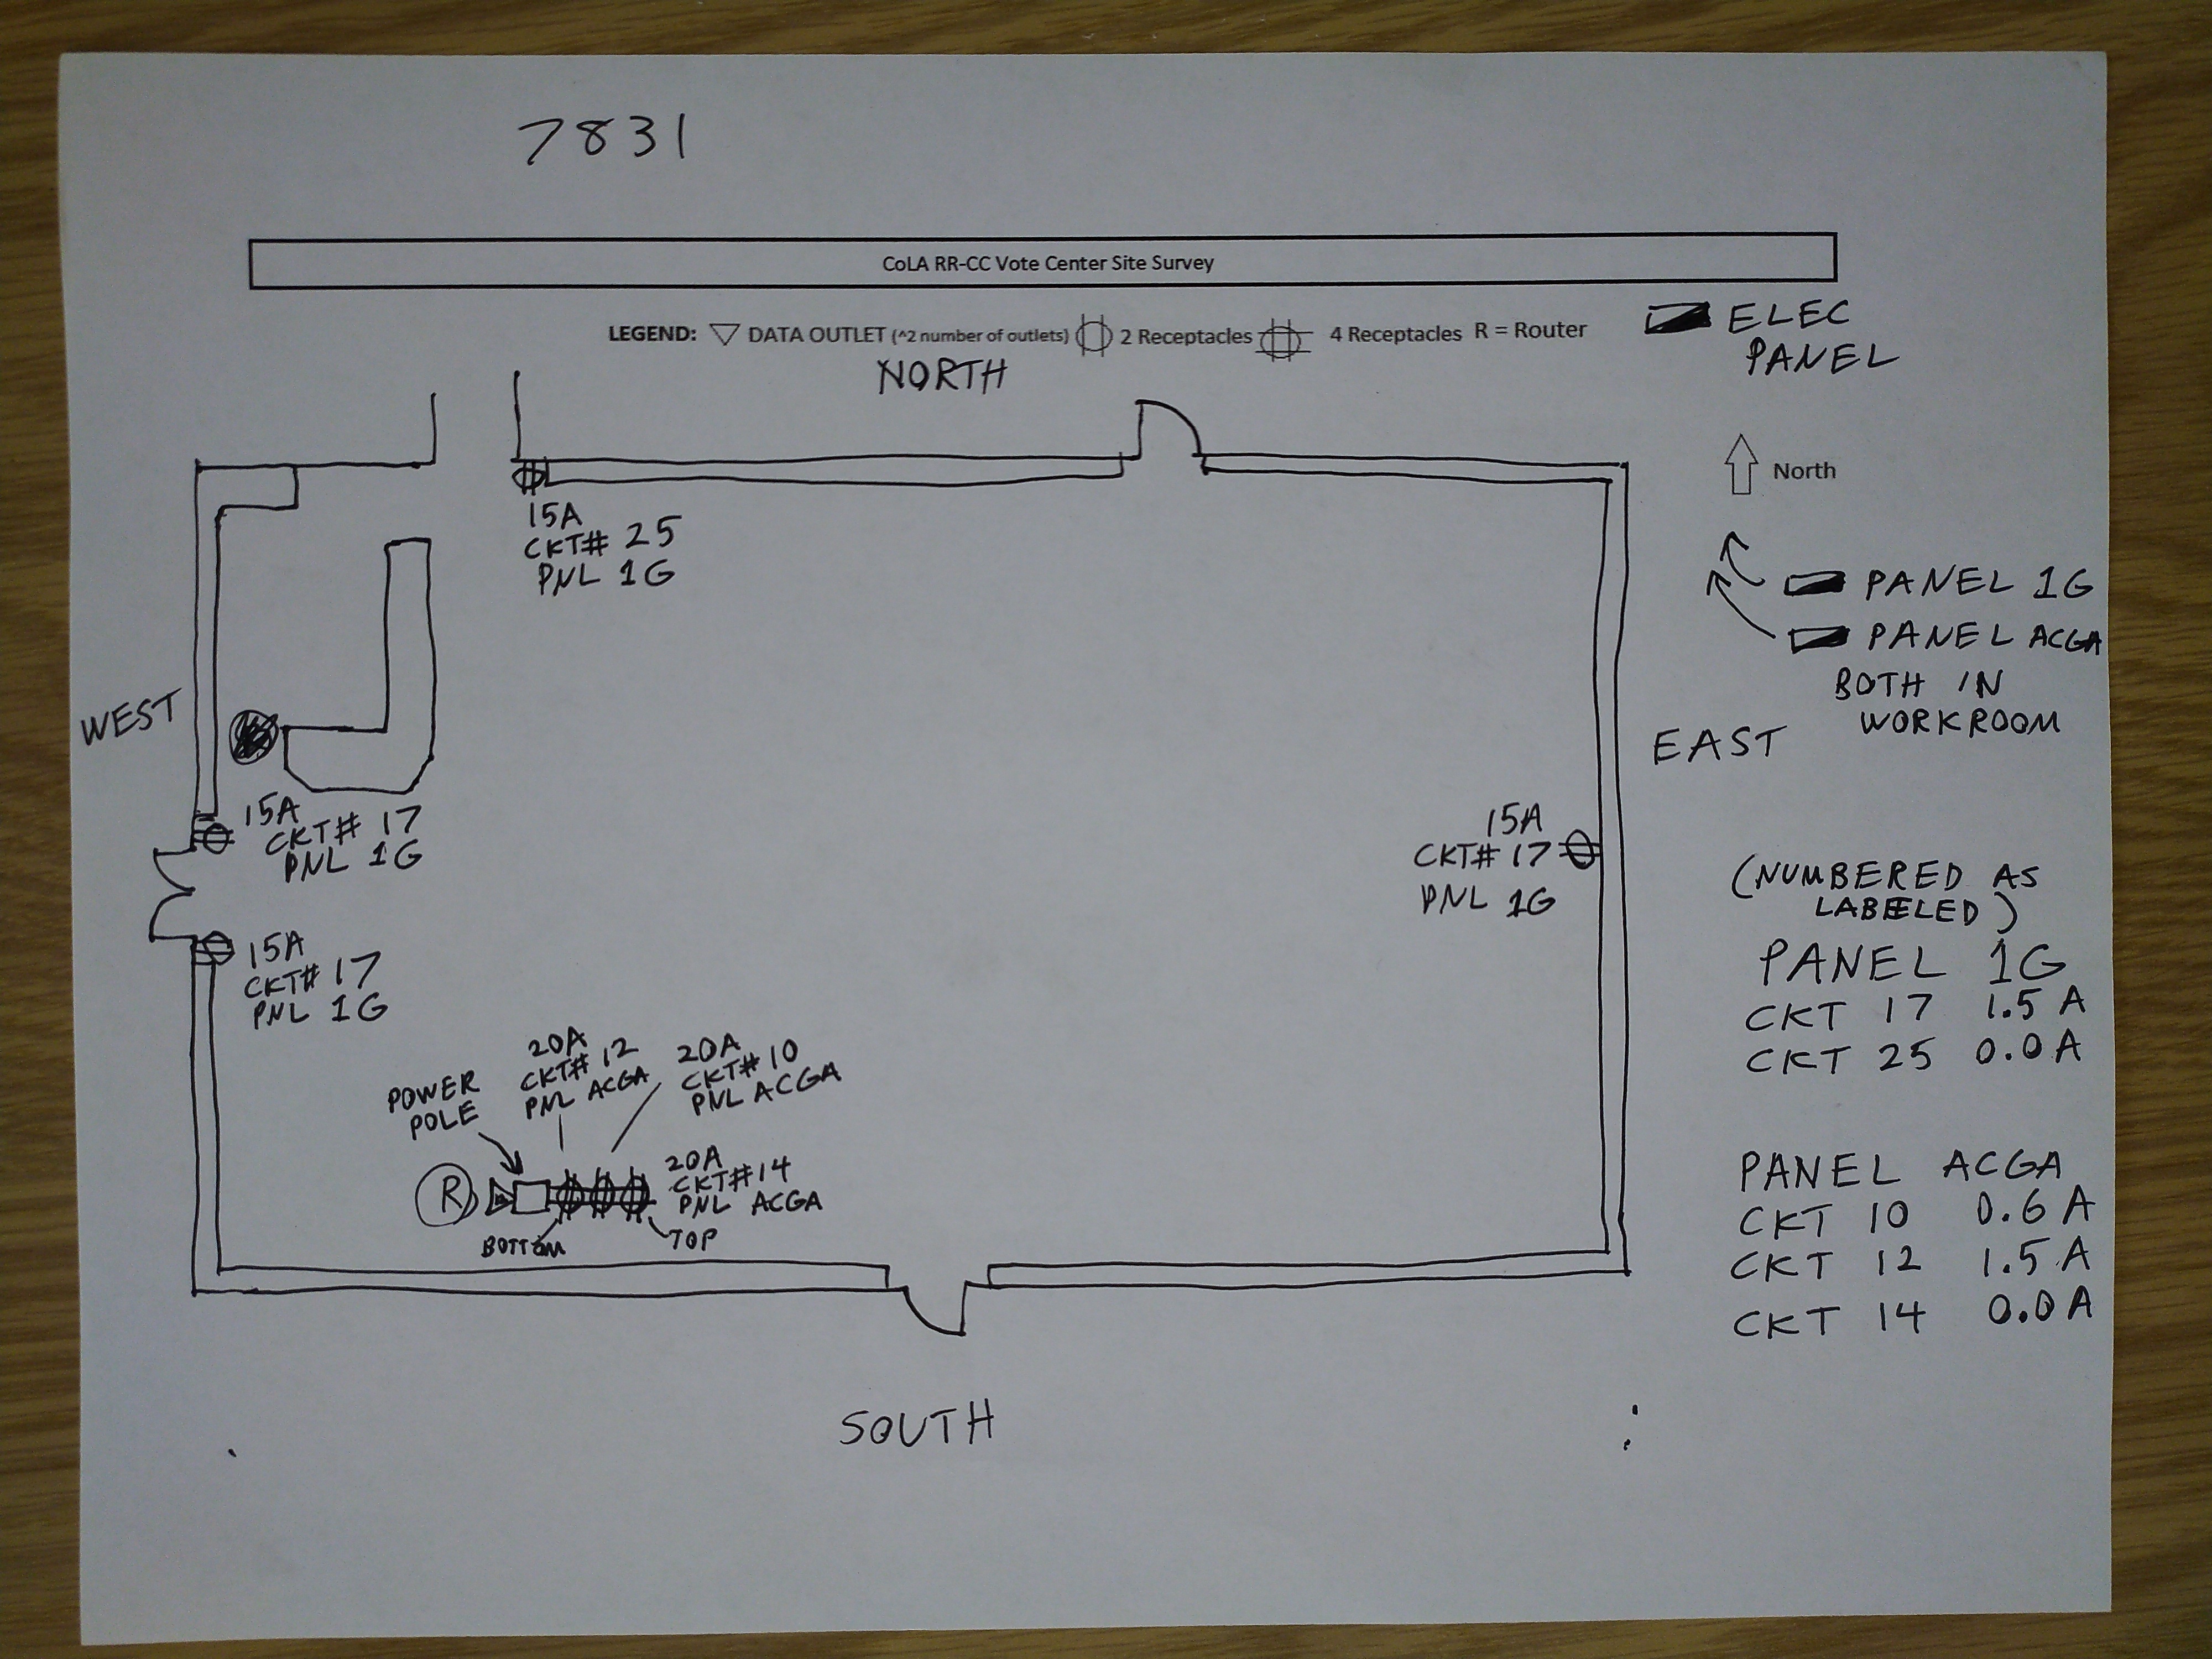 7831
CoLA RR-CC Vote Center Site Survey
LEGEND: DATA OUTLET (^2 number of outlets) 2 Receptacles 4 Receptacles R = Router
ELEC
PANEL
NORTH
North
15A
CKT# 25
PNL 1G
PANEL 1G
PANEL ACGA
BOTH IN
WORKROOM
WEST
EAST
15A
CKT# 17
PNL 1G
15A
CKT# 17
PNL 1G
15A
CKT# 17
PNL 1G
(NUMBERED AS
LABELED)
PANEL 1G
CKT 17 1.5 A
CKT 25 0.0 A
POWER
POLE
20A
CKT# 12
PNL ACGA
20A
CKT# 10
PNL ACGA
20A
CKT# 14
PNL ACGA
R
BOTTOM
TOP
PANEL ACGA
CKT 10 0.6 A
CKT 12 1.5 A
CKT 14 0.0 A
SOUTH